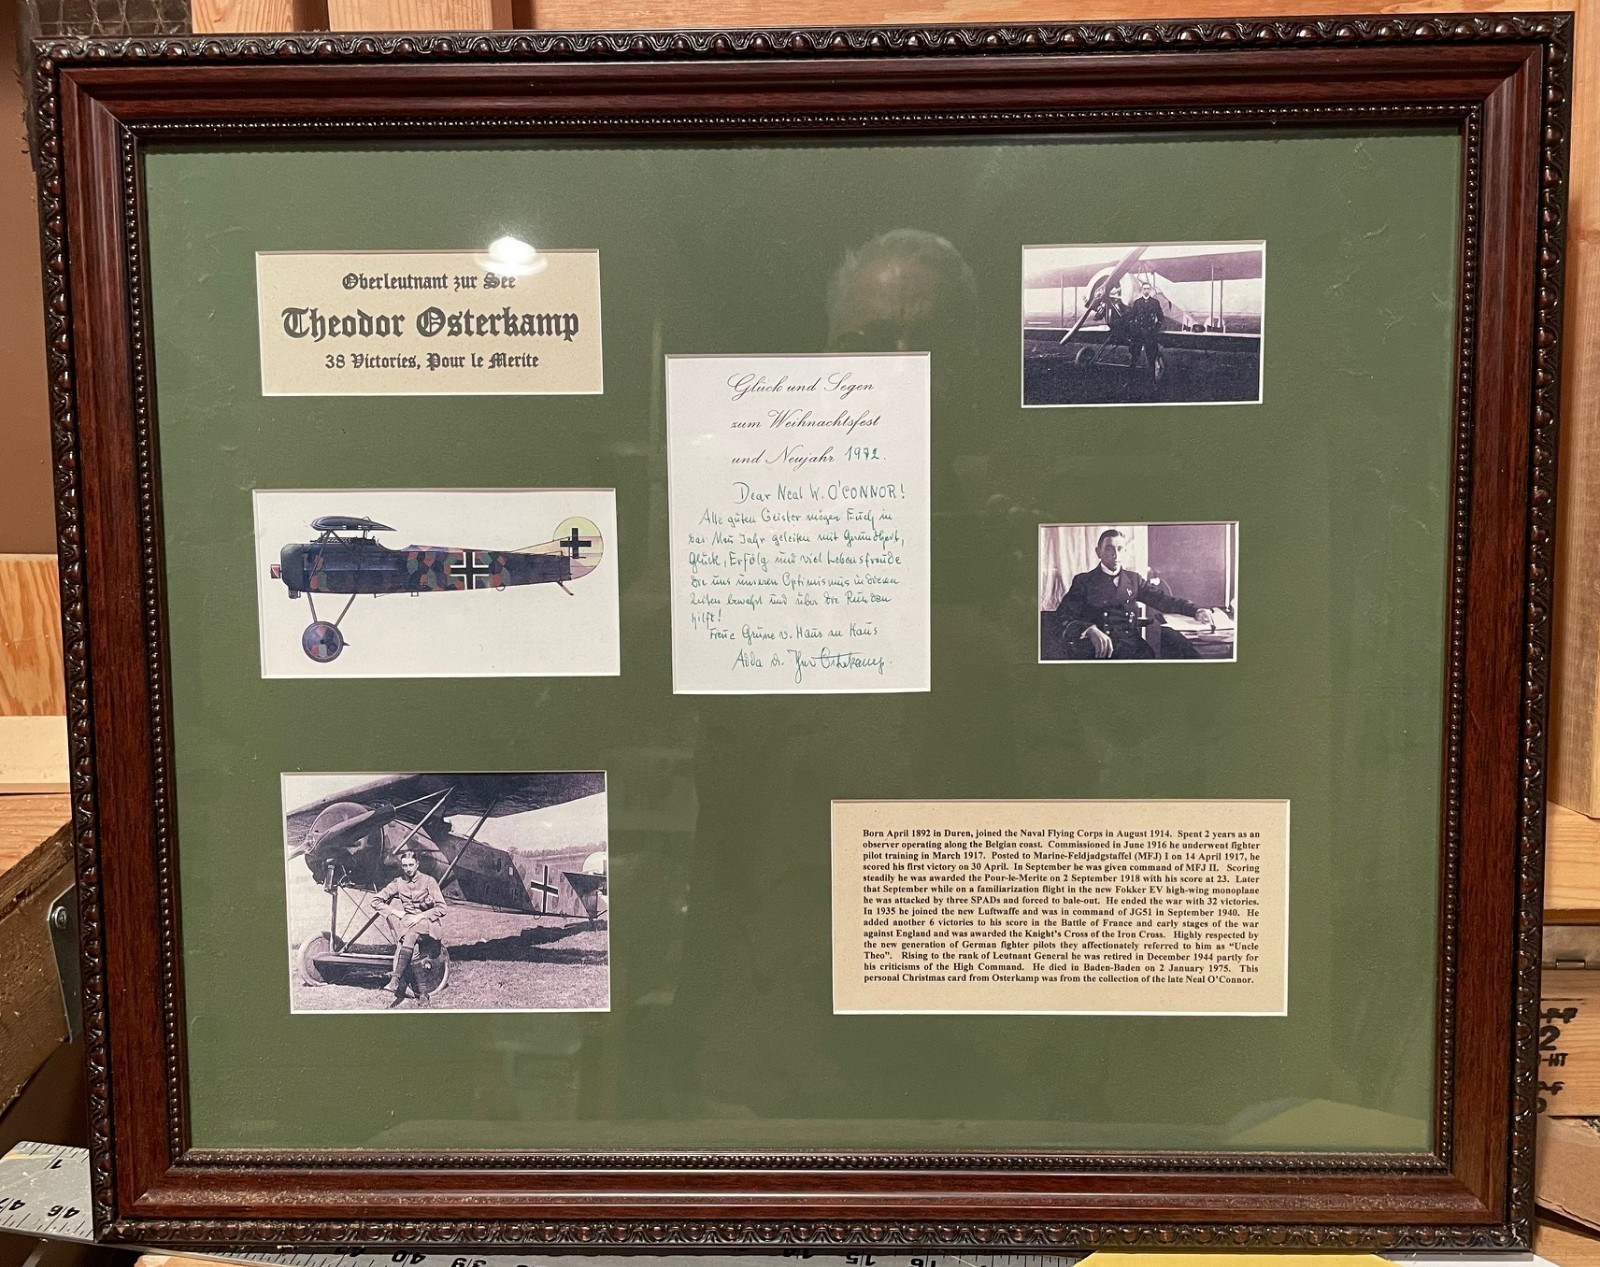 Oberleutnant zur See
Theodor Osterkamp
38 Victories, Pour le Merite
Glück und Segen
zum Weihnachtsfest
und Neujahr 1972.
Dear Neal W. O'CONNOR!
Alle guten Geister mögen Euch in
das Neu Jahr geleiten mit Gesundheit,
Glück, Erfolg und viel Lebensfreude
die uns unseren Optimismus in diesen
Zeiten bewahrt und über die Runden
hilft!
Grüne v. Haus zu Haus
Adda u. Osterkamp.
Born April 1892 in Duren, joined the Naval Flying Corps in August 1914. Spent 2 years as an
observer operating along the Belgian coast. Commissioned in June 1916 he underwent fighter
pilot training in March 1917. Posted to Marine-Feldjadgstaffel (MFJ) I on 14 April 1917, he
scored his first victory on 30 April. In September he was given command of MFJ II. Scoring
steadily he was awarded the Pour-le-Merite on 2 September 1918 with his score at 23. Later
that September while on a familiarization flight in the new Fokker EV high-wing monoplane
he was attacked by three SPADs and forced to bale-out. He ended the war with 32 victories.
In 1935 he joined the new Luftwaffe and was in command of JG51 in September 1940. He
added another 6 victories to his score in the Battle of France and early stages of the war
against England and was awarded the Knight's Cross of the Iron Cross. Highly respected by
the new generation of German fighter pilots they affectionately referred to him as "Uncle
Theo". Rising to the rank of Leutnant General he was retired in December 1944 partly for
his criticisms of the High Command. He died in Baden-Baden on 2 January 1975. This
personal Christmas card from Osterkamp was from the collection of the late Neal O'Connor.
1
46
40
39
15
16
2